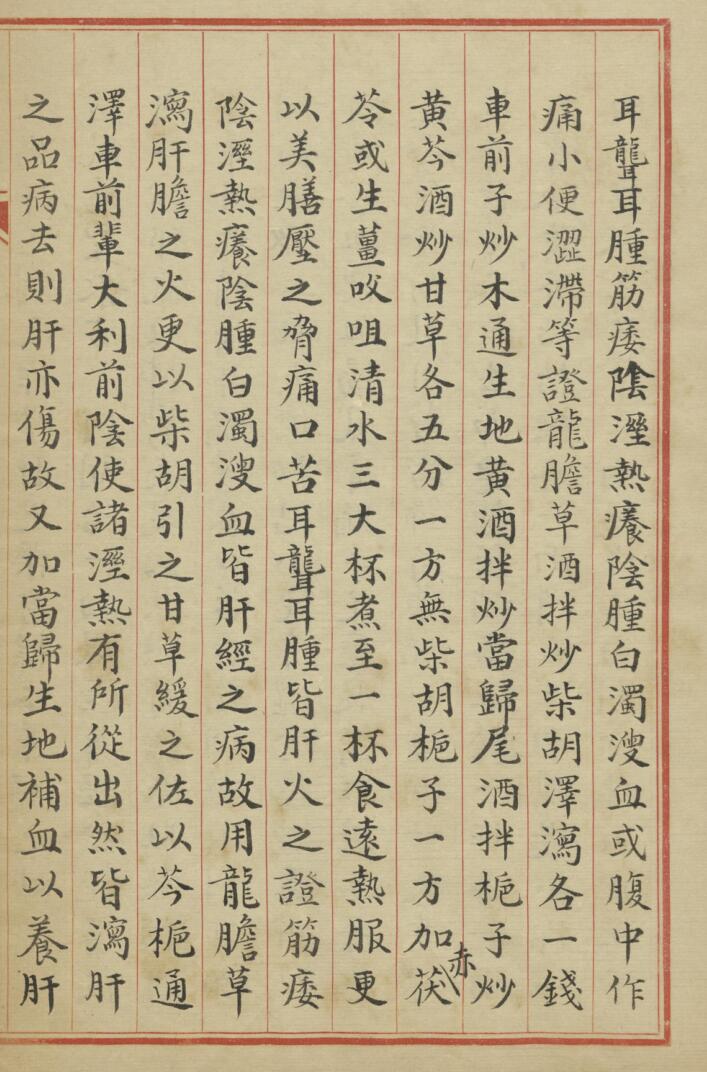 耳聾耳腫筋痿陰溼熱癢陰腫白濁溲血或腹中作
痛小便澀滯等證龍膽草酒拌炒柴胡澤瀉各一錢
車前子炒木通生地黄酒拌炒當歸尾酒拌梔子炒
黄芩酒炒甘草各五分一方無柴胡梔子一方加赤茯
苓或生薑㕮咀清水三大杯煮至一杯食遠熱服更
以美膳壓之脅痛口苦耳聾耳腫皆肝火之證筋痿
陰溼熱癢陰腫白濁溲血皆肝經之病故用龍膽草
瀉肝膽之火更以柴胡引之甘草緩之佐以芩梔通
澤車前輩大利前陰使諸溼熱有所從出然皆瀉肝
之品病去則肝亦傷故又加當歸生地補血以養肝